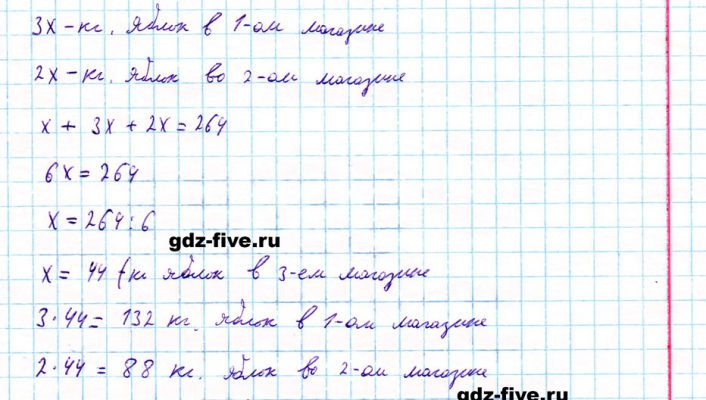 3x - кг. яблок в 1-ом магазине
2x - кг. яблок во 2-ом магазине
x + 3x + 2x = 264
6x = 264
x = 264 : 6
gdz-five.ru
x = 44 (кг яблок в 3-ем магазине
3 · 44 = 132 кг. яблок в 1-ом магазине
2 · 44 = 88 кг. яблок во 2-ом магазине
gdz-five.ru